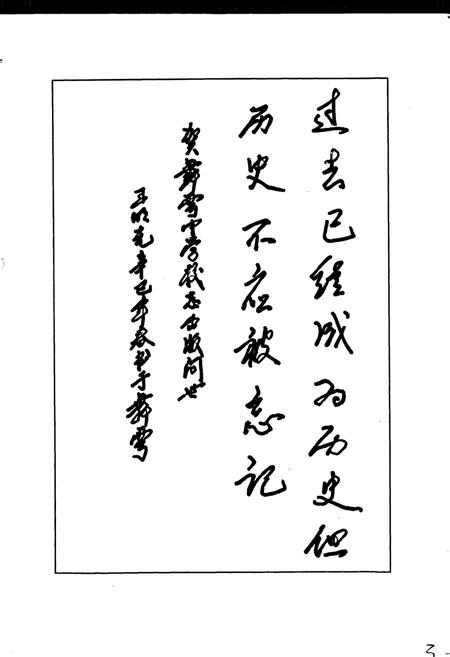 过去已经成为历史但
历史不应被忘记
贺舞雩中学校志出版问世
王明克辛巳年春书于舞雩